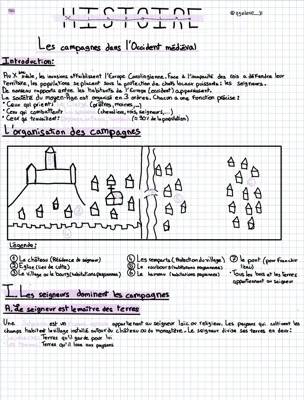 HISTOIRE
Les campagnes dans l'Occident médiéval
Introduction:
Au X siècle, les invasions affaiblissent l'Europe Carolingienne. Face à l'incapacité des rois à défendre leur
territoire, les populations se placent sous la protection de chefs locaux puissants: les seigneurs.
De nouveaux rapports entre les habitants de l'Europe (occident) apparaissent.
La société du moyen-âge est organisé en 3 ordres. Chacun a une fonction précise:
• Ceux qui prient (prêtres, moines,...)
• Ceux qui combattent (chevaliers, rois, seigneurs,...)
• Ceux qui travaillent (≈ 90% de la population)
L'organisation des campagnes
Légende:
① Le château (Résidence du seigneur)
② Église (Lieu de culte)
③ Le village ou le bourg (habitations paysannes)
④ Les remparts (Protection du village)
⑤ Le faubourg (habitations paysannes)
⑥ Le hameau (habitations paysannes)
⑦ le pont (pour franchir l'eau)
• Tous les bois et les terres appartiennent au seigneur
I. Les seigneurs dominent les campagnes
A. Le seigneur est le maître des terres
Une est un appartenant au seigneur laïc ou religieux. Les paysans qui cultivent les
champs habitent le village installé autour du château ou du monastère. Le seigneur divise ses terres en deux:
Terres qu'il garde pour lui
Terres qu'il loue aux paysans